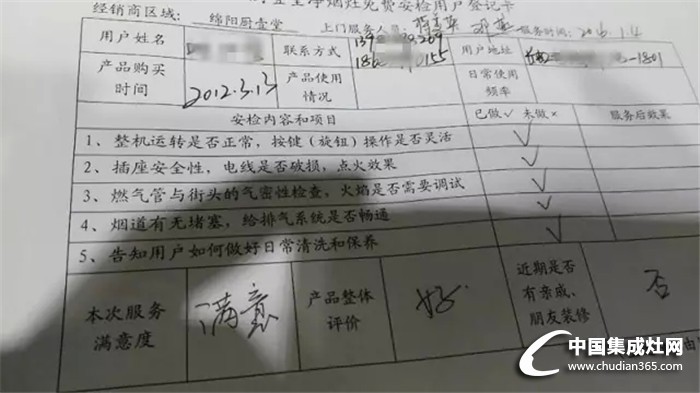 净烟灶免费安检用户登记卡
经销商区域: 绵阳厨壹堂 上门服务人员: 服务时间:2016.1.4
用户姓名 联系方式 用户地址
产品购买时间 2012.3.13 产品使用情况 日常使用频率
安检内容和项目 已做√ 未做× 服务后效果
1、整机运转是否正常,按健(旋钮)操作是否灵活 √
2、插座安全性,电线是否破损,点火效果 √
3、燃气管与街头的气密性检查,火焰是否需要调试 √
4、烟道有无堵塞,给排气系统是否畅通 √
5、告知用户如何做好日常清洗和保养 √
本次服务满意度 满意 产品整体评价 好 近期是否有亲戚、朋友装修 否
中国集成灶网
www.chudian365.com